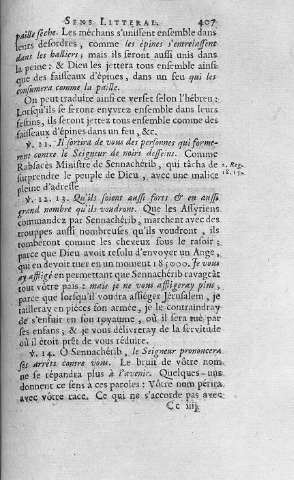 SENS LITTERAL. 407
paille séche. Les méchans s'unissent ensemble dans
leurs desordres, comme les épines s'entrelassent
dans les halliers; mais ils seront aussi unis dans
la peine; & Dieu les jettera tous ensemble ainsi
que des faisseaux d'épines, dans un feu qui les
consumera comme la paille.
On peut traduire ainsi ce verset selon l'hébreu:
Lorsqu'ils se seront enyvrez ensemble dans leurs
festins, ils seront jettez tous ensemble comme des
faisseaux d'épines dans un feu, &c.
℣. 11. Il sortira de vous des personnes qui forme-
ront contre le Seigneur de noirs desseins. Comme
Rabsacès Ministre de Sennachérib, qui tâcha de
2. Reg.
surprendre le peuple de Dieu, avec une malice
18. 19.
pleine d'adresse
℣. 12. 13. Qu'ils soient aussi forts & en aussi
grand nombre qu'ils voudront. Que les Assyriens
commandez par Sennachérib, marchent avec des
trouppes aussi nombreuses qu'ils voudront, ils
tomberont comme les cheveux sous le rasoir;
parce que Dieu avoit resolu d'envoyer un Ange,
qui en devoit tuer en un moment 185000. Je vous
ay affligé en permettant que Sennachérib ravageât
tout vôtre païs: mais je ne vous affligeray plus,
parce que lorsqu'il voudra assiéger Jérusalem, je
tailleray en piéces son armée, je le contraindray
de s'enfuir en son royaume, où il sera tué par
ses enfans; & je vous délivreray de la servitude
où il étoit prêt de vous réduire.
℣. 14. O Sennachérib, le Seigneur prononcera
ses arrêts contre vous. Le bruit de vôtre nom
ne se répandra plus à l'avenir. Quelques-uns
donnent ce sens à ces paroles: Vôtre nom périra
avec vôtre race. Ce qui ne s'accorde pas avec
Cc iiij